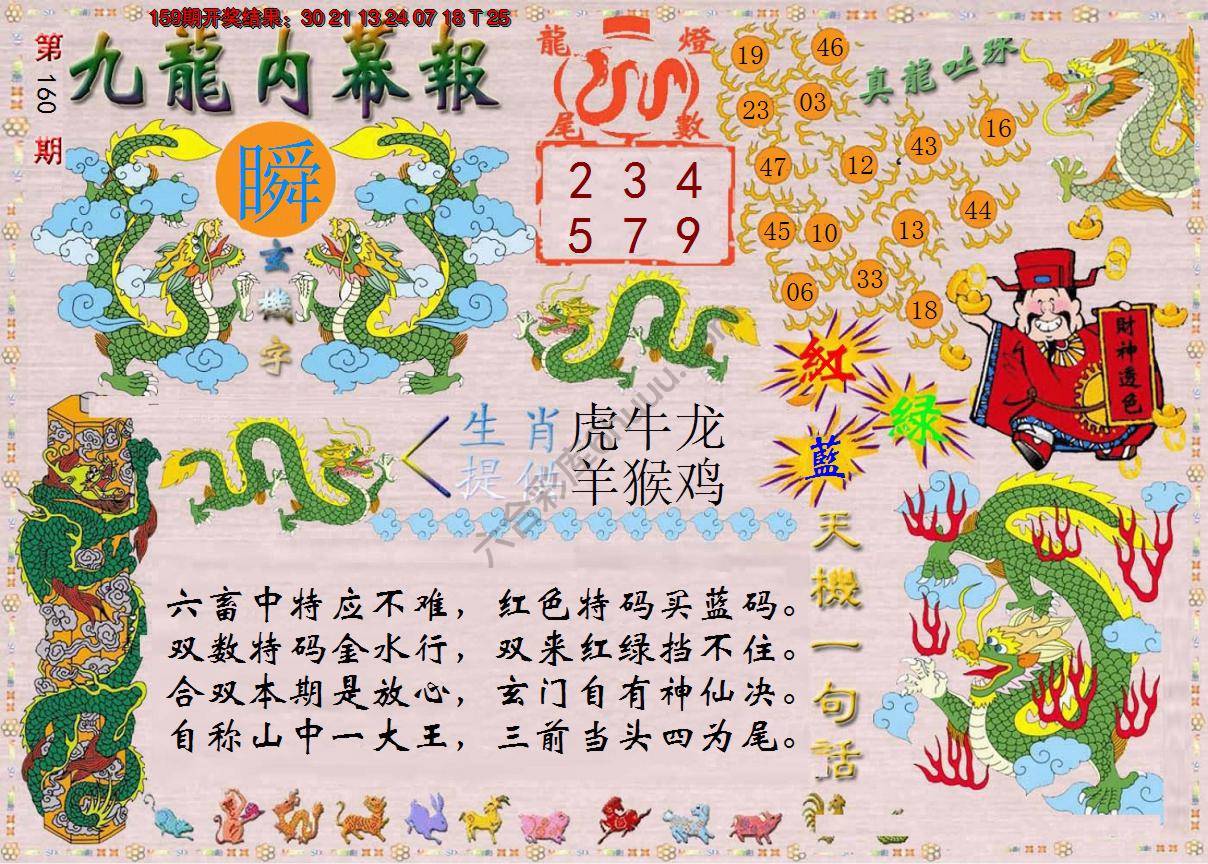 159期开奖结果：30 21 13 24 07 18 T 25
第160期
九龍内幕報
瞬
玄機字
龍燈
尾數
2 3 4
5 7 9
真龍吐珠
19 46
23 03
47 12 43 16
45 10 13 44
06 33 18
財神透色
紅
綠
藍
生肖 虎牛龙
提供 羊猴鸡
天機一句話
六畜中特应不难，红色特码买蓝码。
双数特码金水行，双来红绿挡不住。
合双本期是放心，玄门自有神仙决。
自称山中一大王，三前当头四为尾。